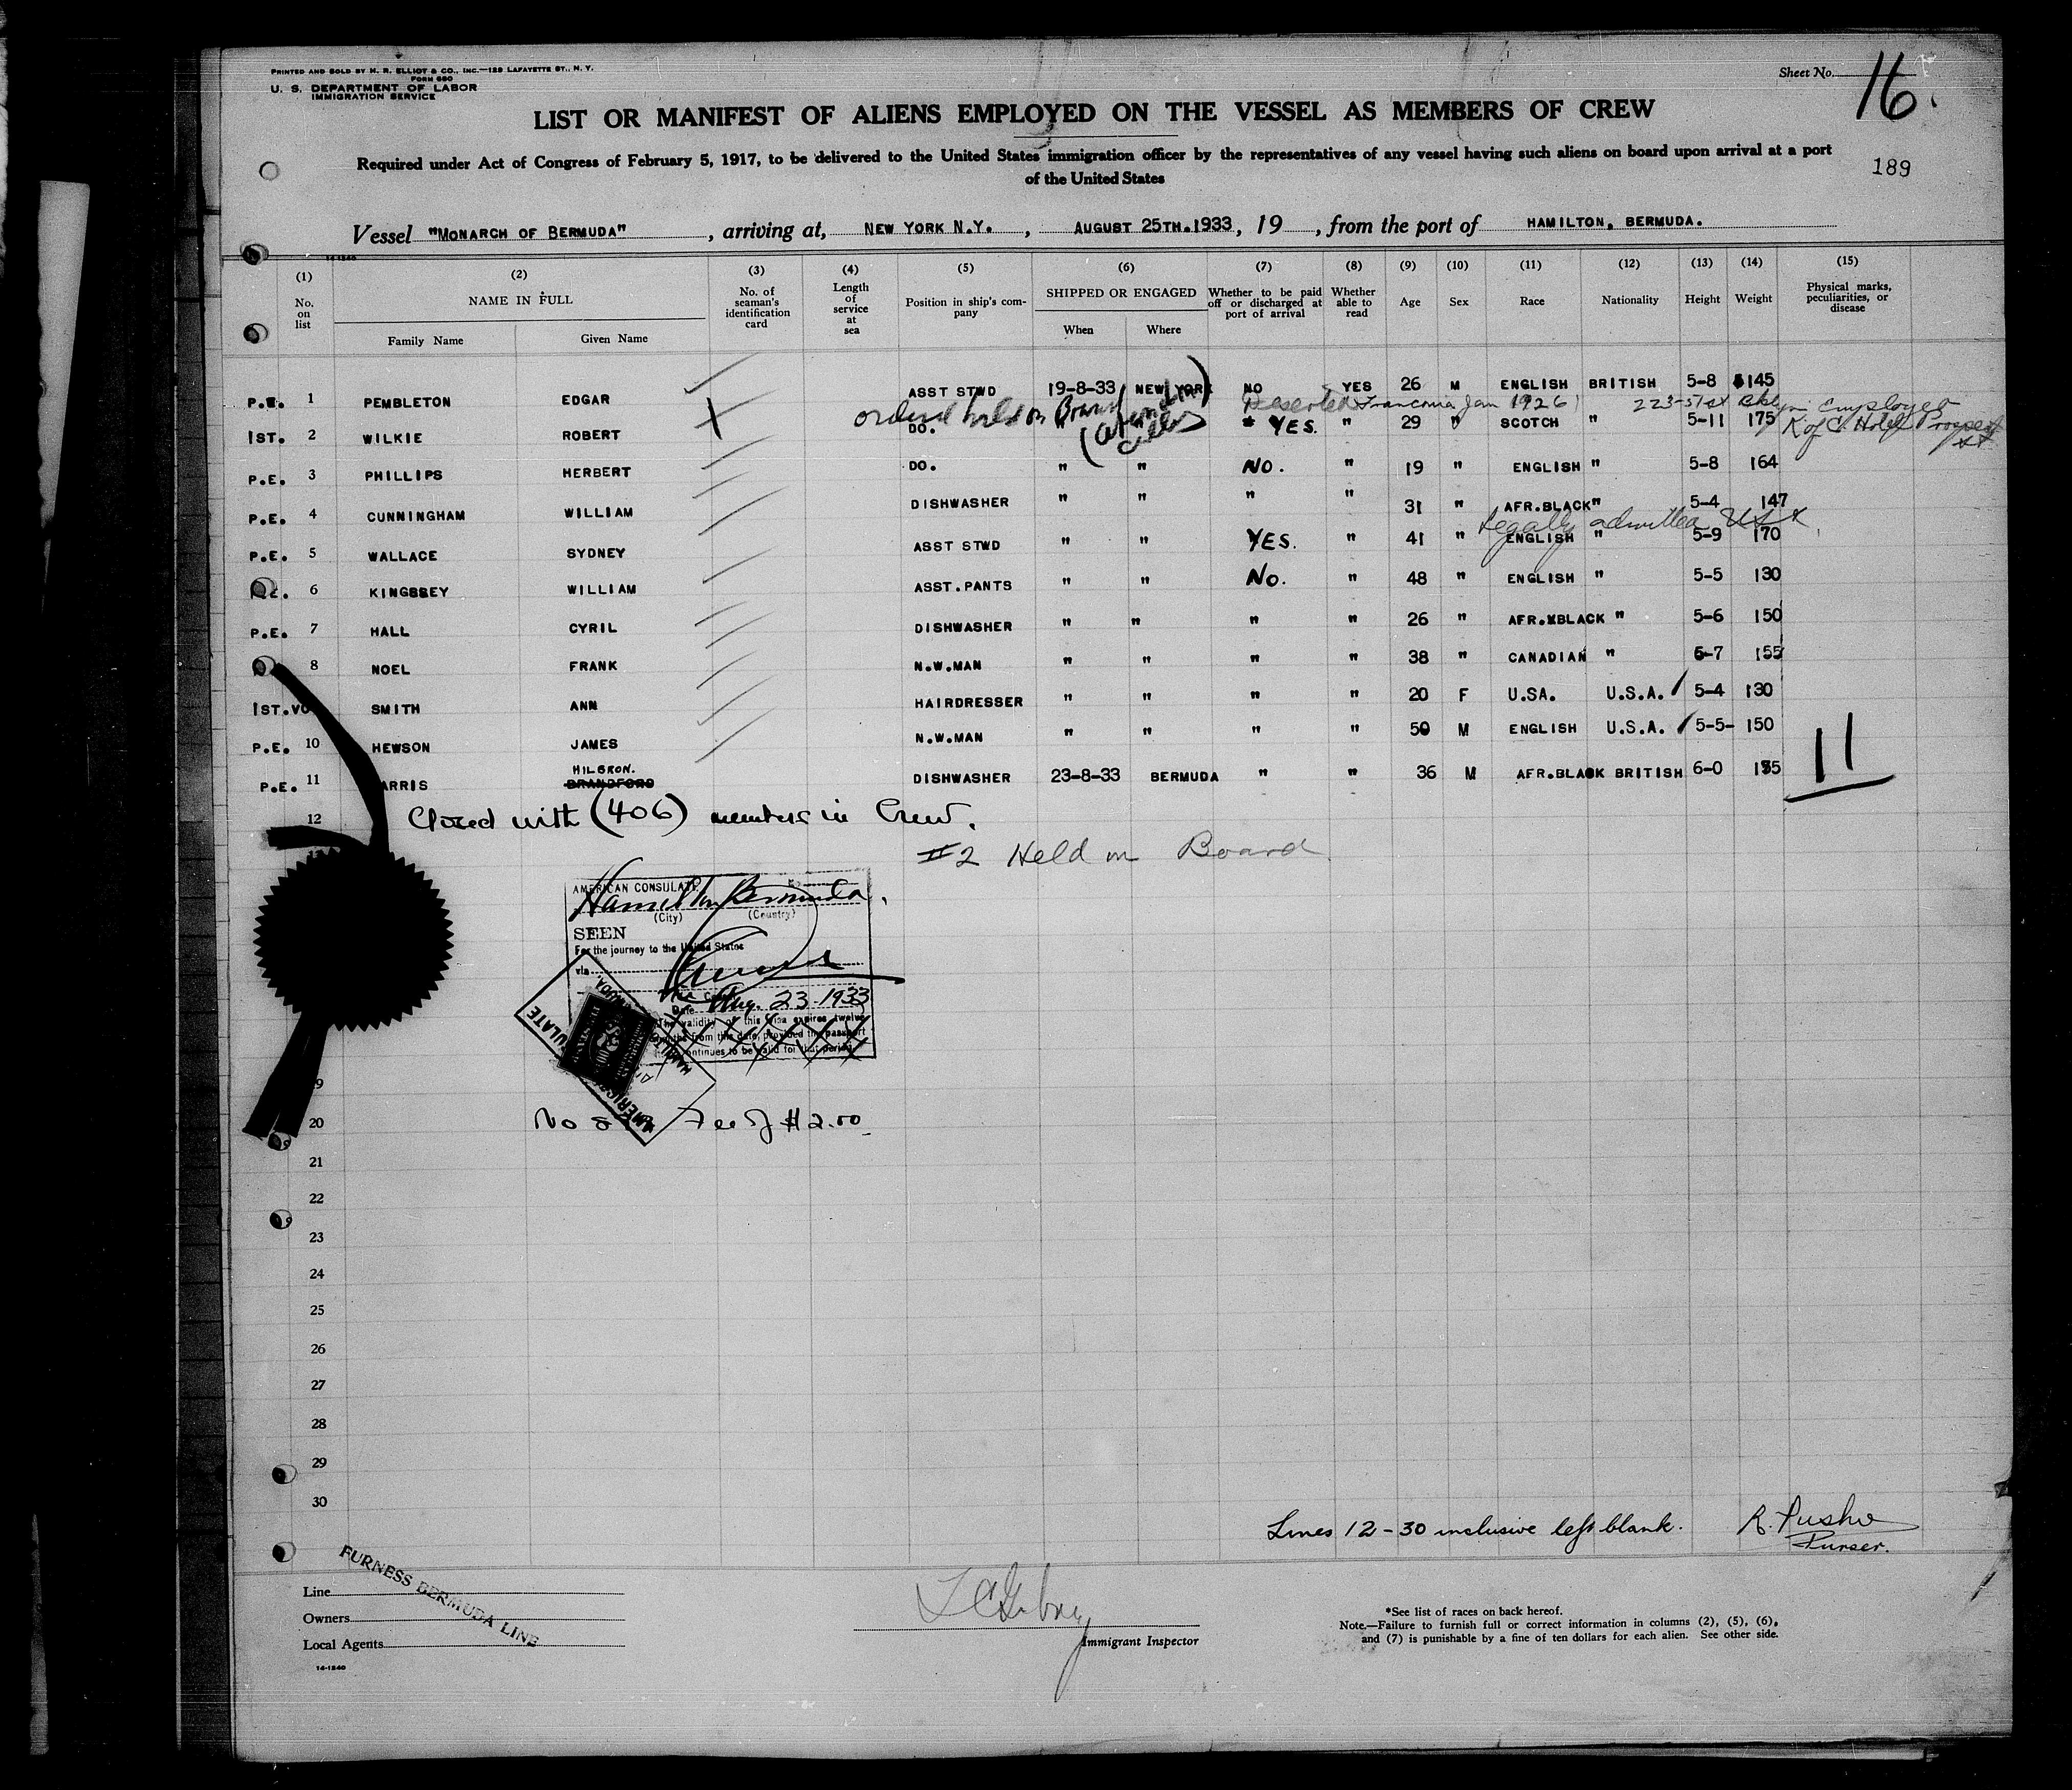 PRINTED AND SOLD BY M. R. ELLIOT & CO., INC.—129 LAFAYETTE ST., N. Y.
FORM 680
U. S. DEPARTMENT OF LABOR
IMMIGRATION SERVICE
Sheet No. 16
LIST OR MANIFEST OF ALIENS EMPLOYED ON THE VESSEL AS MEMBERS OF CREW
Required under Act of Congress of February 5, 1917, to be delivered to the United States immigration officer by the representatives of any vessel having such aliens on board upon arrival at a port
of the United States
189
Vessel "MONARCH OF BERMUDA", arriving at, NEW YORK N.Y., AUGUST 25TH.1933, 19 , from the port of HAMILTON, BERMUDA.
14-1240
(1) (2) (3) (4) (5) (6) (7) (8) (9) (10) (11) (12) (13) (14) (15)
No. on list NAME IN FULL No. of seaman's identification card Length of service at sea Position in ship's company SHIPPED OR ENGAGED Whether to be paid off or discharged at port of arrival Whether able to read Age Sex Race Nationality Height Weight Physical marks, peculiarities, or disease
Family Name Given Name When Where
P.E. 1 PEMBLETON EDGAR ASST STWD 19-8-33 NEW YORK NO YES 26 M ENGLISH BRITISH 5-8 145
ordered held on Board Deserted Franconia Jan 1926 223-51st Bklyn employed
1ST. 2 WILKIE ROBERT DO. " * YES. " 29 " SCOTCH " 5-11 175 K of C Hotel Prospect
P.E. 3 PHILLIPS HERBERT DO. " " NO. " 19 " ENGLISH " 5-8 164
P.E. 4 CUNNINGHAM WILLIAM DISHWASHER " " " " 31 " AFR.BLACK " 5-4 147
Legally admitted US
P.E. 5 WALLACE SYDNEY ASST STWD " " YES. " 41 " ENGLISH " 5-9 170
6 KINGSSEY WILLIAM ASST.PANTS " " No. " 48 " ENGLISH " 5-5 130
P.E. 7 HALL CYRIL DISHWASHER " " " " 26 " AFR.BLACK " 5-6 150
8 NOEL FRANK N.W.MAN " " " " 38 " CANADIAN " 5-7 155
1ST.VO SMITH ANN HAIRDRESSER " " " " 20 F U.SA. U.S.A. 5-4 130
P.E. 10 HEWSON JAMES N.W.MAN " " " " 50 M ENGLISH U.S.A. 5-5- 150
HILGRON.
P.E. 11 ARRIS BRANDFORD DISHWASHER 23-8-33 BERMUDA " " 36 M AFR.BLACK BRITISH 6-0
11
12 Closed with (406) members in Crew.
#2 Held on Board
AMERICAN CONSULATE
Hamilton Bermuda.
(City) (Country)
SEEN
For the journey to the United States
via
Date Aug. 23-1933
The validity of this visa expires twelve
months from this date, provided the passport
continues to be valid for that period
19
20
No Fee of $2.00
21
22
23
24
25
26
27
28
29
30
Lines 12-30 inclusive left blank. R. Pusho
Purser.
FURNESS BERMUDA LINE
Line
Owners
Local Agents
14-1240
Immigrant Inspector
*See list of races on back hereof.
Note.—Failure to furnish full or correct information in columns (2), (5), (6),
and (7) is punishable by a fine of ten dollars for each alien. See other side.